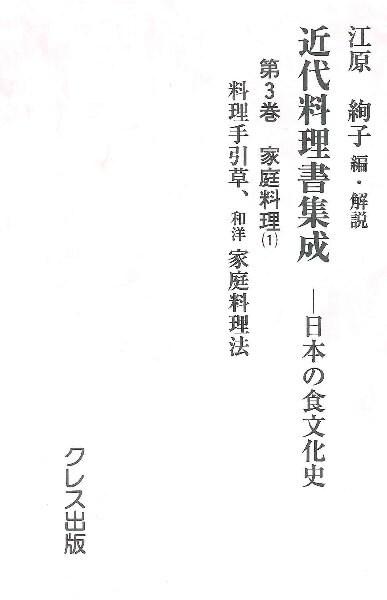 江原 絢子 編・解説
近代料理書集成 ―日本の食文化史
第3巻 家庭料理(1)
料理手引草、和洋家庭料理法
クレス出版